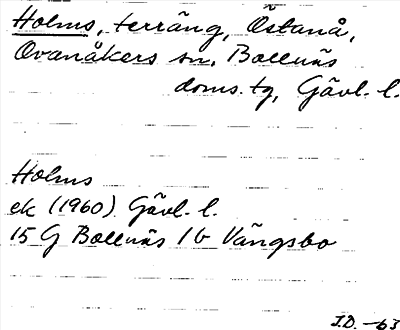 Holms, terräng, Östanå,
Ovanåkers sn, Bollnäs
doms. tg, Gävl. l.
Holms
ek (1960) Gävl. l.
15 G Bollnäs 1 b Vängsbo
I.D. -63